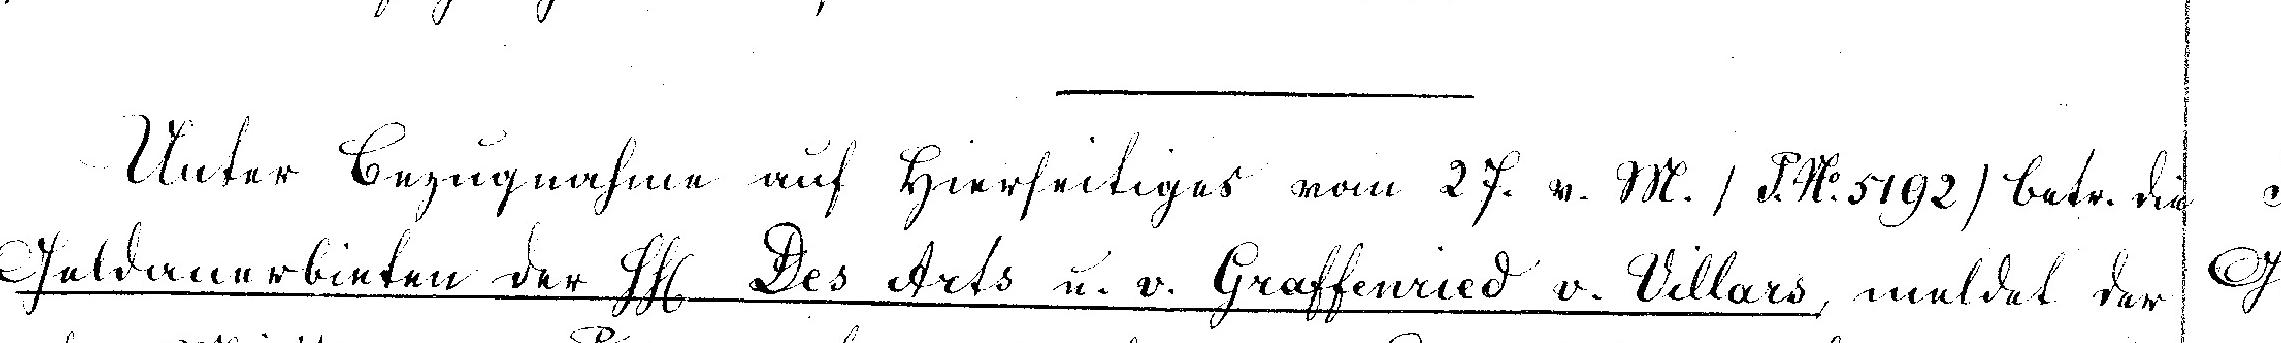 Unter Bezugnahme auf Hierseitiges vom 27. v. M. / P. No. 5192) betr. die
Geldanerbieten der HH. Des Arts u. v. Graffenried v. Villars, meldet der